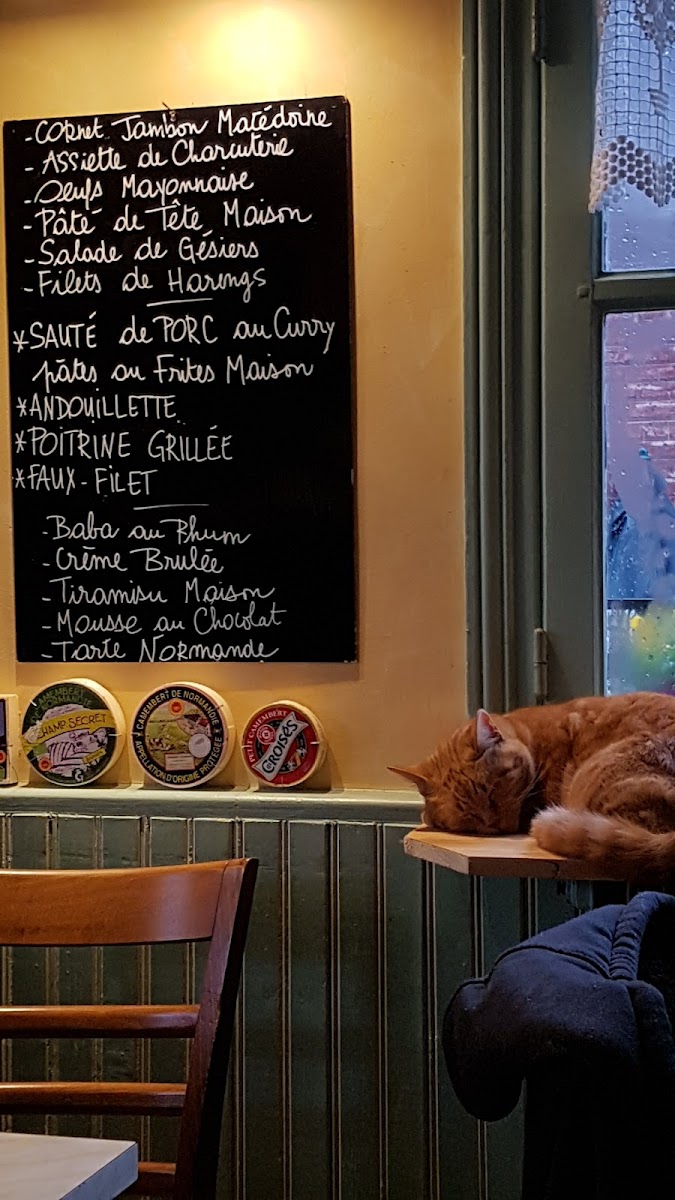 - CORNET JAMBON MACÉDOINE
- ASSIETTE de CHARCUTERIE
- Oeufs Mayonnaise
- Pâté de Tête Maison
- Salade de Gésiers
- Filets de Harengs
*SAUTÉ de PORC au Curry
pâtes au Frites Maison
*ANDOUILLETTE
*POITRINE GRILLÉE
*FAUX-FILET
- Baba au Rhum
- Crème Brulée
- Tiramisu Maison
- Mousse au Chocolat
- Tarte Normande
CAMEMBERT
NORMANDIE
CHAMP SECRET
CAMEMBERT DE NORMANDIE
APPELLATION D'ORIGINE PROTÉGÉE
PETIT CAMEMBERT
CROISÉS